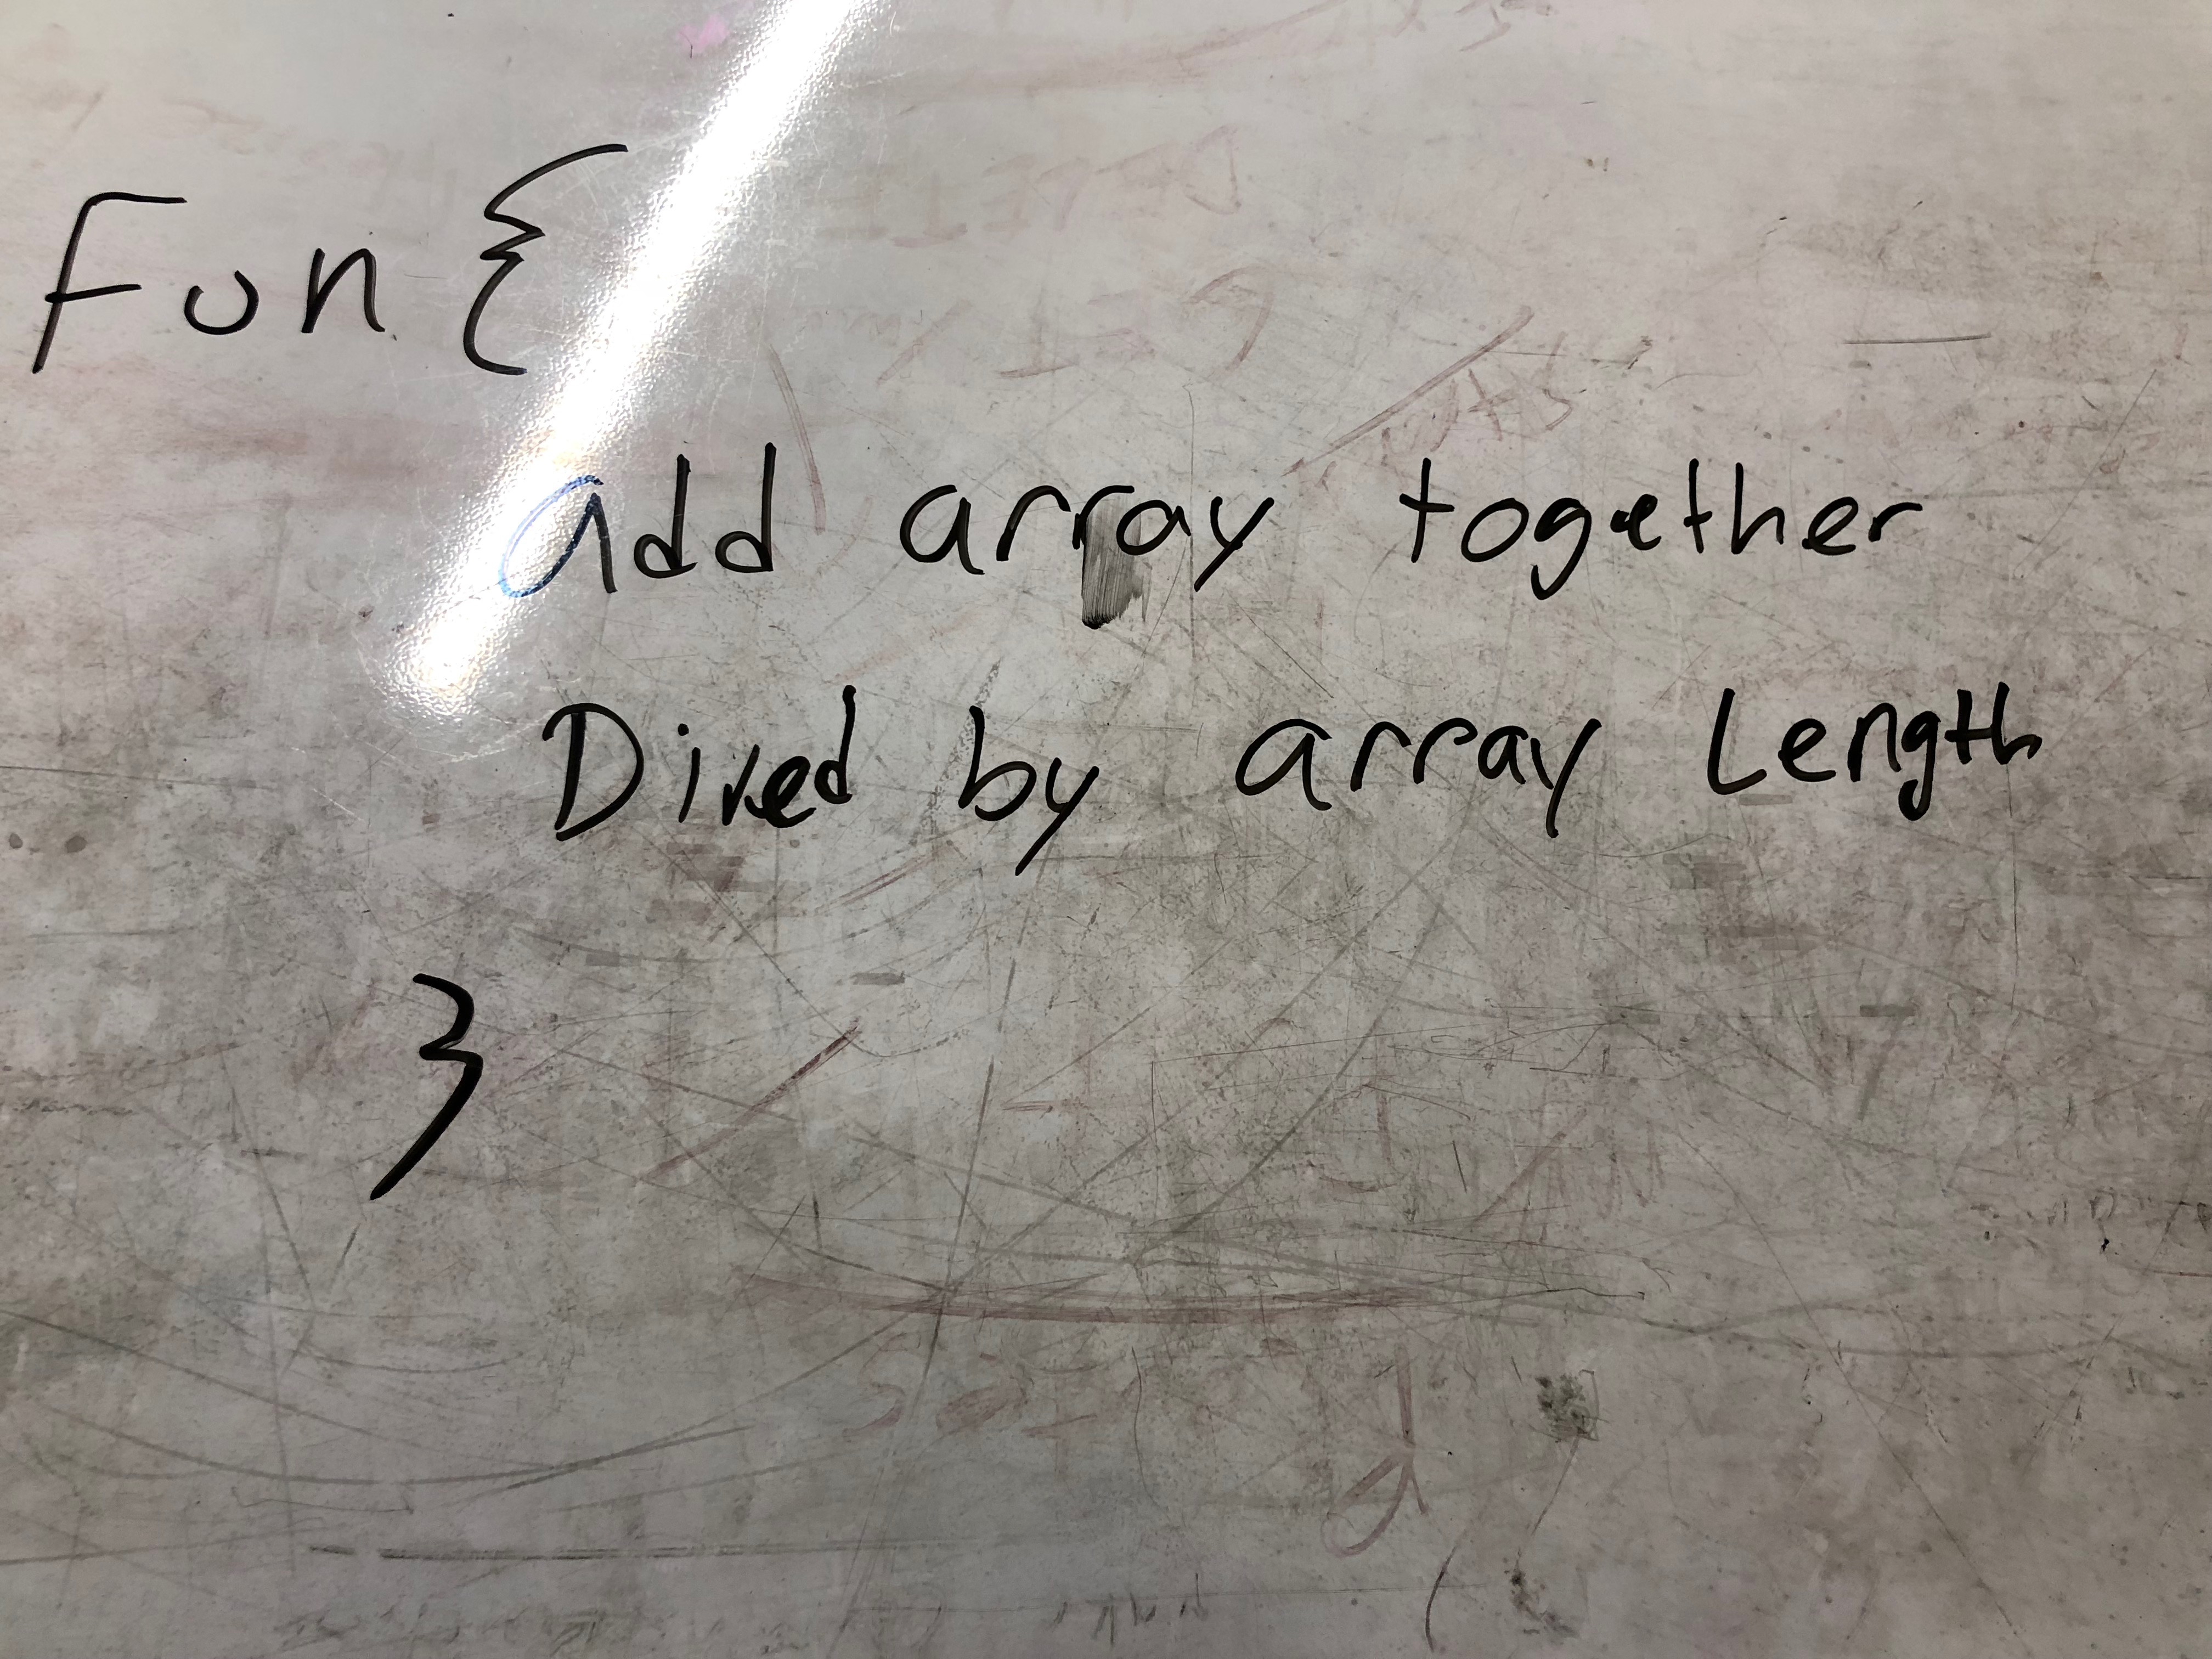 Fun {
add array together
Dived by array Length
}